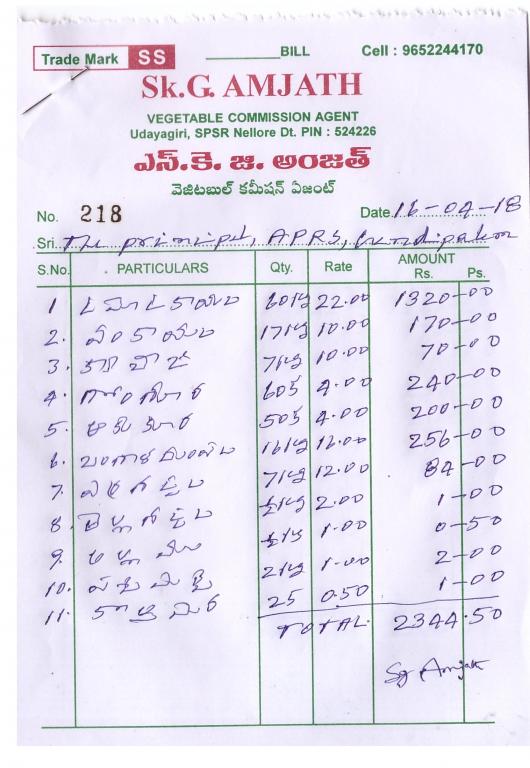 Trade Mark SS
BILL
Cell : 9652244170
Sk.G. AMJATH
VEGETABLE COMMISSION AGENT
Udayagiri, SPSR Nellore Dt. PIN : 524226
ఎస్.కె. జి. అంజత్
వెజిటబుల్ కమీషన్ ఏజంట్
No. 218 Date 16-04-18
Sri. The principal, APRS,
S.No. PARTICULARS Qty. Rate AMOUNT Rs. Ps.
1 టమాటకాయలు 60kg 22.00 1320-00
2. వంకాయలు 17kg 10.00 170-00
3. 7kg 10.00 70-00
4. గోంగూర 60క 4.00 240-00
5. ఆకుకూర 50క 4.00 200-00
6. 16kg 16.00 256-00
7. 7kg 12.00 84-00
8. ½kg 2.00 1-00
9. ½kg 1.00 0-50
10. 2kg 1.00 2-00
11. 25 0.50 1-00
TOTAL 2344.50